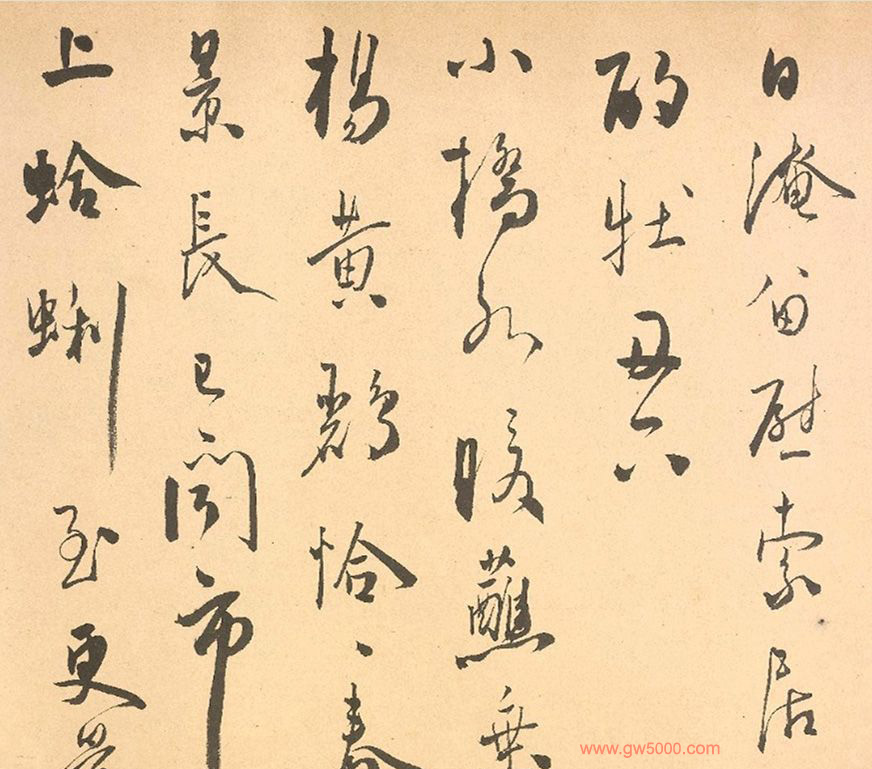 日淹留慰索居
酌牡丹下
小橋水暖蘸垂
楊黃鸝恰〻春
景長已聞市
上蛤蜊至更
www.gw5000.com